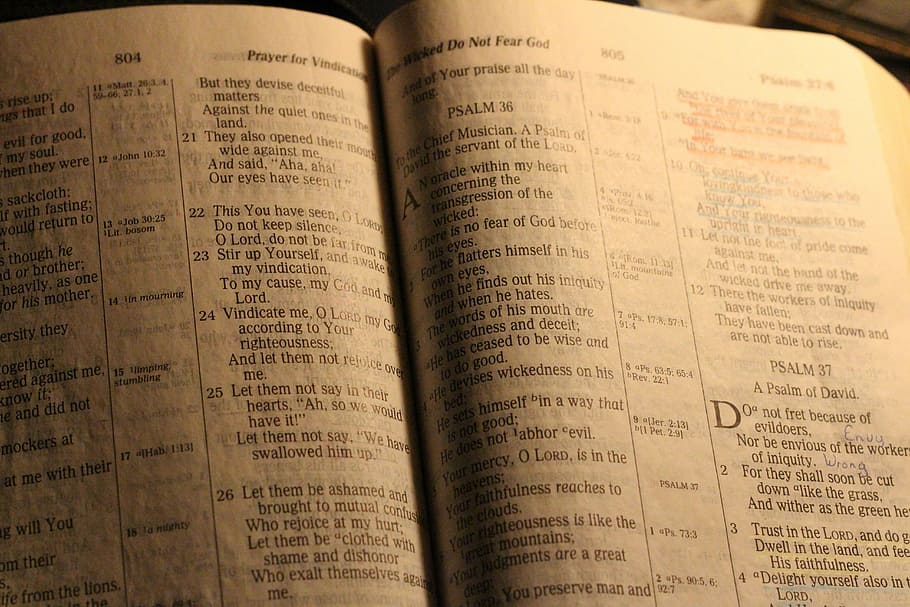 804
Prayer for Vindication
rise up;
ngs that I do
evil for good,
my soul.
when they were
s sackcloth;
lf with fasting;
would return to
s though he
nd or brother;
heavily, as one
for his mother.
ersity they
ogether;
ered against me,
know it;
e and did not
mockers at
at me with their
ng will You
om their
life from the lions.
11 a Matt. 26:3, 4,
59–66; 27:1, 2
12 a John 10:32
13 a Job 30:25
1 Lit. bosom
14 1 in mourning
15 1 limping,
stumbling
17 a [Hab. 1:13]
18 1 a mighty
But they devise deceitful
matters
Against the quiet ones in the
land.
21 They also opened their mouth
wide against me,
And said, "Aha, aha!
Our eyes have seen it."
22 This You have seen, O LORD;
Do not keep silence.
O Lord, do not be far from me.
23 Stir up Yourself, and awake
my vindication,
To my cause, my God and my
Lord.
24 Vindicate me, O LORD my God,
according to Your
righteousness;
And let them not rejoice over
me.
25 Let them not say in their
hearts, "Ah, so we would
have it!"
Let them not say, "We have
swallowed him up."
26 Let them be ashamed and
brought to mutual confusion
Who rejoice at my hurt;
Let them be a clothed with
shame and dishonor
Who exalt themselves against
me.
The Wicked Do Not Fear God
805
Psalm 37:4
And of Your praise all the day
long.
PSALM 36
To the Chief Musician. A Psalm of
David the servant of the LORD.
AN oracle within my heart
concerning the
transgression of the
wicked:
a There is no fear of God before
his eyes.
For he flatters himself in his
own eyes,
When he finds out his iniquity
and when he hates.
3 The words of his mouth are
wickedness and deceit;
a He has ceased to be wise and
to do good.
4 a He devises wickedness on his
bed;
He sets himself b in a way that
is not good;
He does not 1 abhor c evil.
Your mercy, O LORD, is in the
heavens;
Your faithfulness reaches to
the clouds.
Your righteousness is like the
1 great mountains;
a Your judgments are a great
deep;
LORD, You preserve man and
6 a [Rom. 11:33]
1 Lit. mountains
of God
7 a Ps. 17:8; 57:1;
91:4
8 a Ps. 63:5; 65:4
b Rev. 22:1
9 a [Jer. 2:13]
b [1 Pet. 2:9]
PSALM 37
1 a Ps. 73:3
2 a Ps. 90:5, 6;
92:7
10 Oh, continue Your
lovingkindness to those who
know You,
And Your righteousness to the
upright in heart.
11 Let not the foot of pride come
against me,
And let not the hand of the
wicked drive me away.
12 There the workers of iniquity
have fallen;
They have been cast down and
are not able to rise.
PSALM 37
A Psalm of David.
DO a not fret because of
evildoers,
Envy
Nor be envious of the workers
of iniquity. Wrong
2 For they shall soon be cut
down a like the grass,
And wither as the green he
3 Trust in the LORD, and do g
Dwell in the land, and fee
His faithfulness.
4 a Delight yourself also in t
LORD,